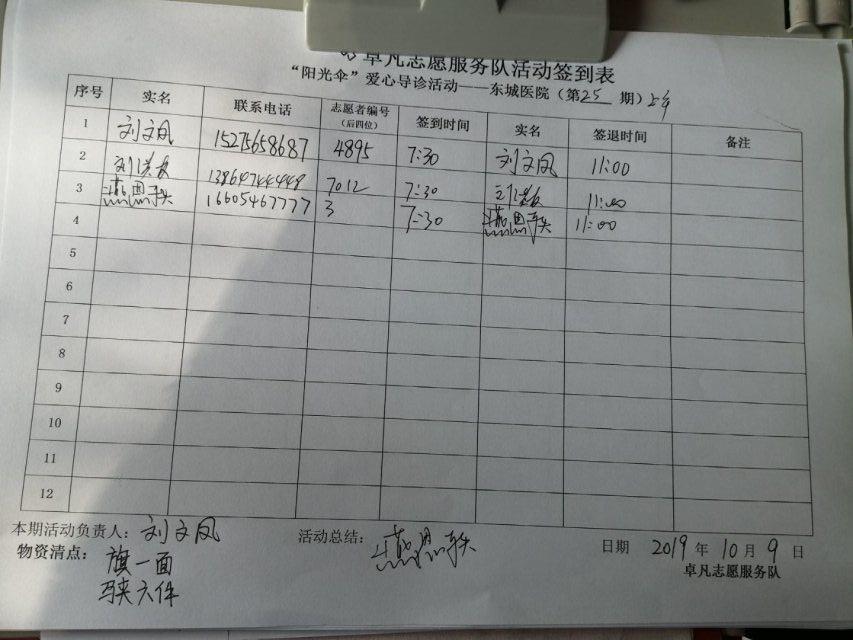 卓凡志愿服务队活动签到表
“阳光伞”爱心导诊活动——东城医院(第25期)上午
序号 实名 联系电话 志愿者编号(后四位) 签到时间 实名 签退时间 备注
1 刘文凤 15275658687 4895 7:30 刘文凤 11:00
2 刘 13864744449 7012 7:30 11:00
3 燕 16605467777 3 7:30 燕 11:00
4
5
6
7
8
9
10
11
12
本期活动负责人:刘文凤 活动总结:燕 日期 2019年10月9日
物资清点:旗一面 卓凡志愿服务队
马夹六件